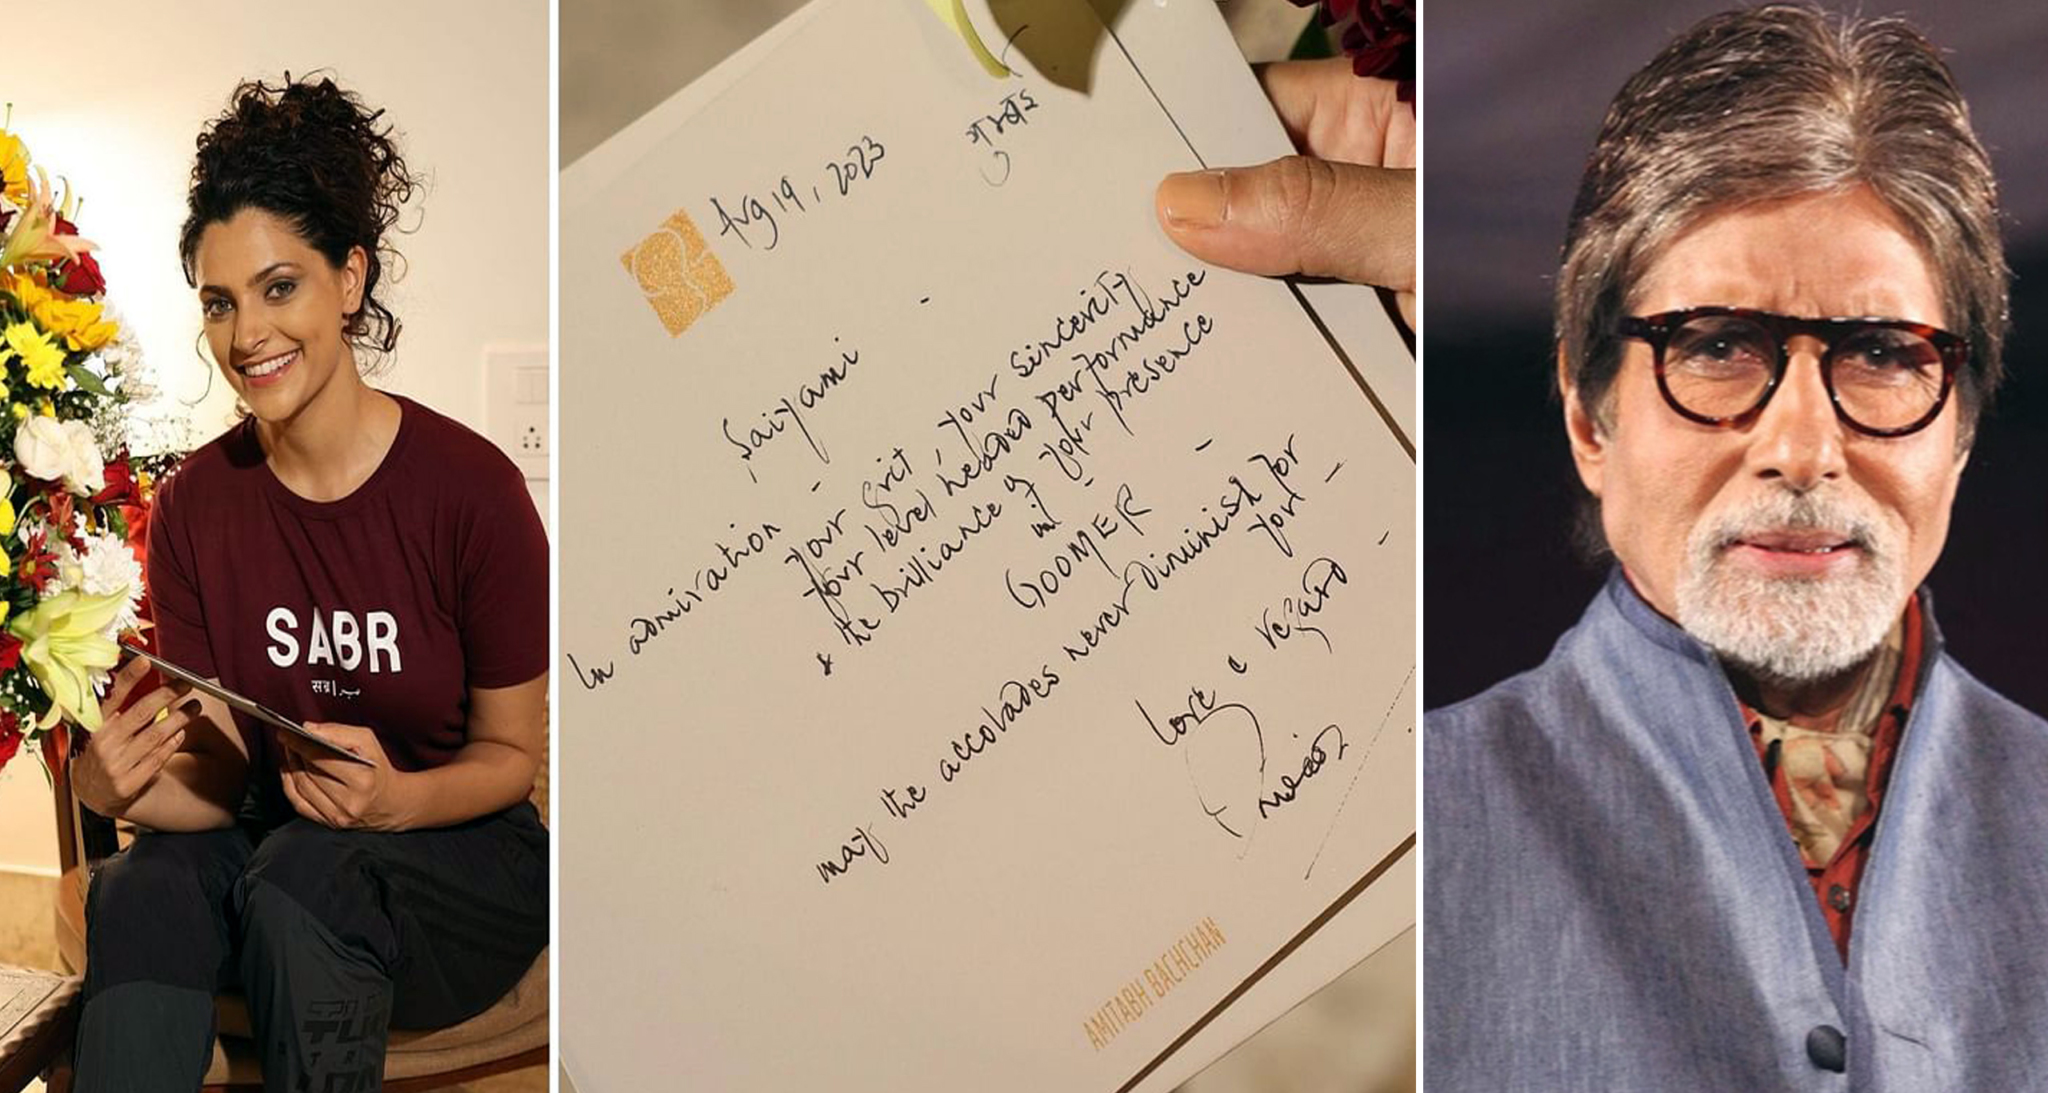 SABR
सब्र | صبر
Aug 19, 2023 मुम्बई
Saiyami -
In admiration -
your Grit, your sincerity
your level headed performance
& the brilliance of your presence
in -
GOOMER -
may the accolades never diminish for
you -
love & regard -
AMITABH BACHCHAN